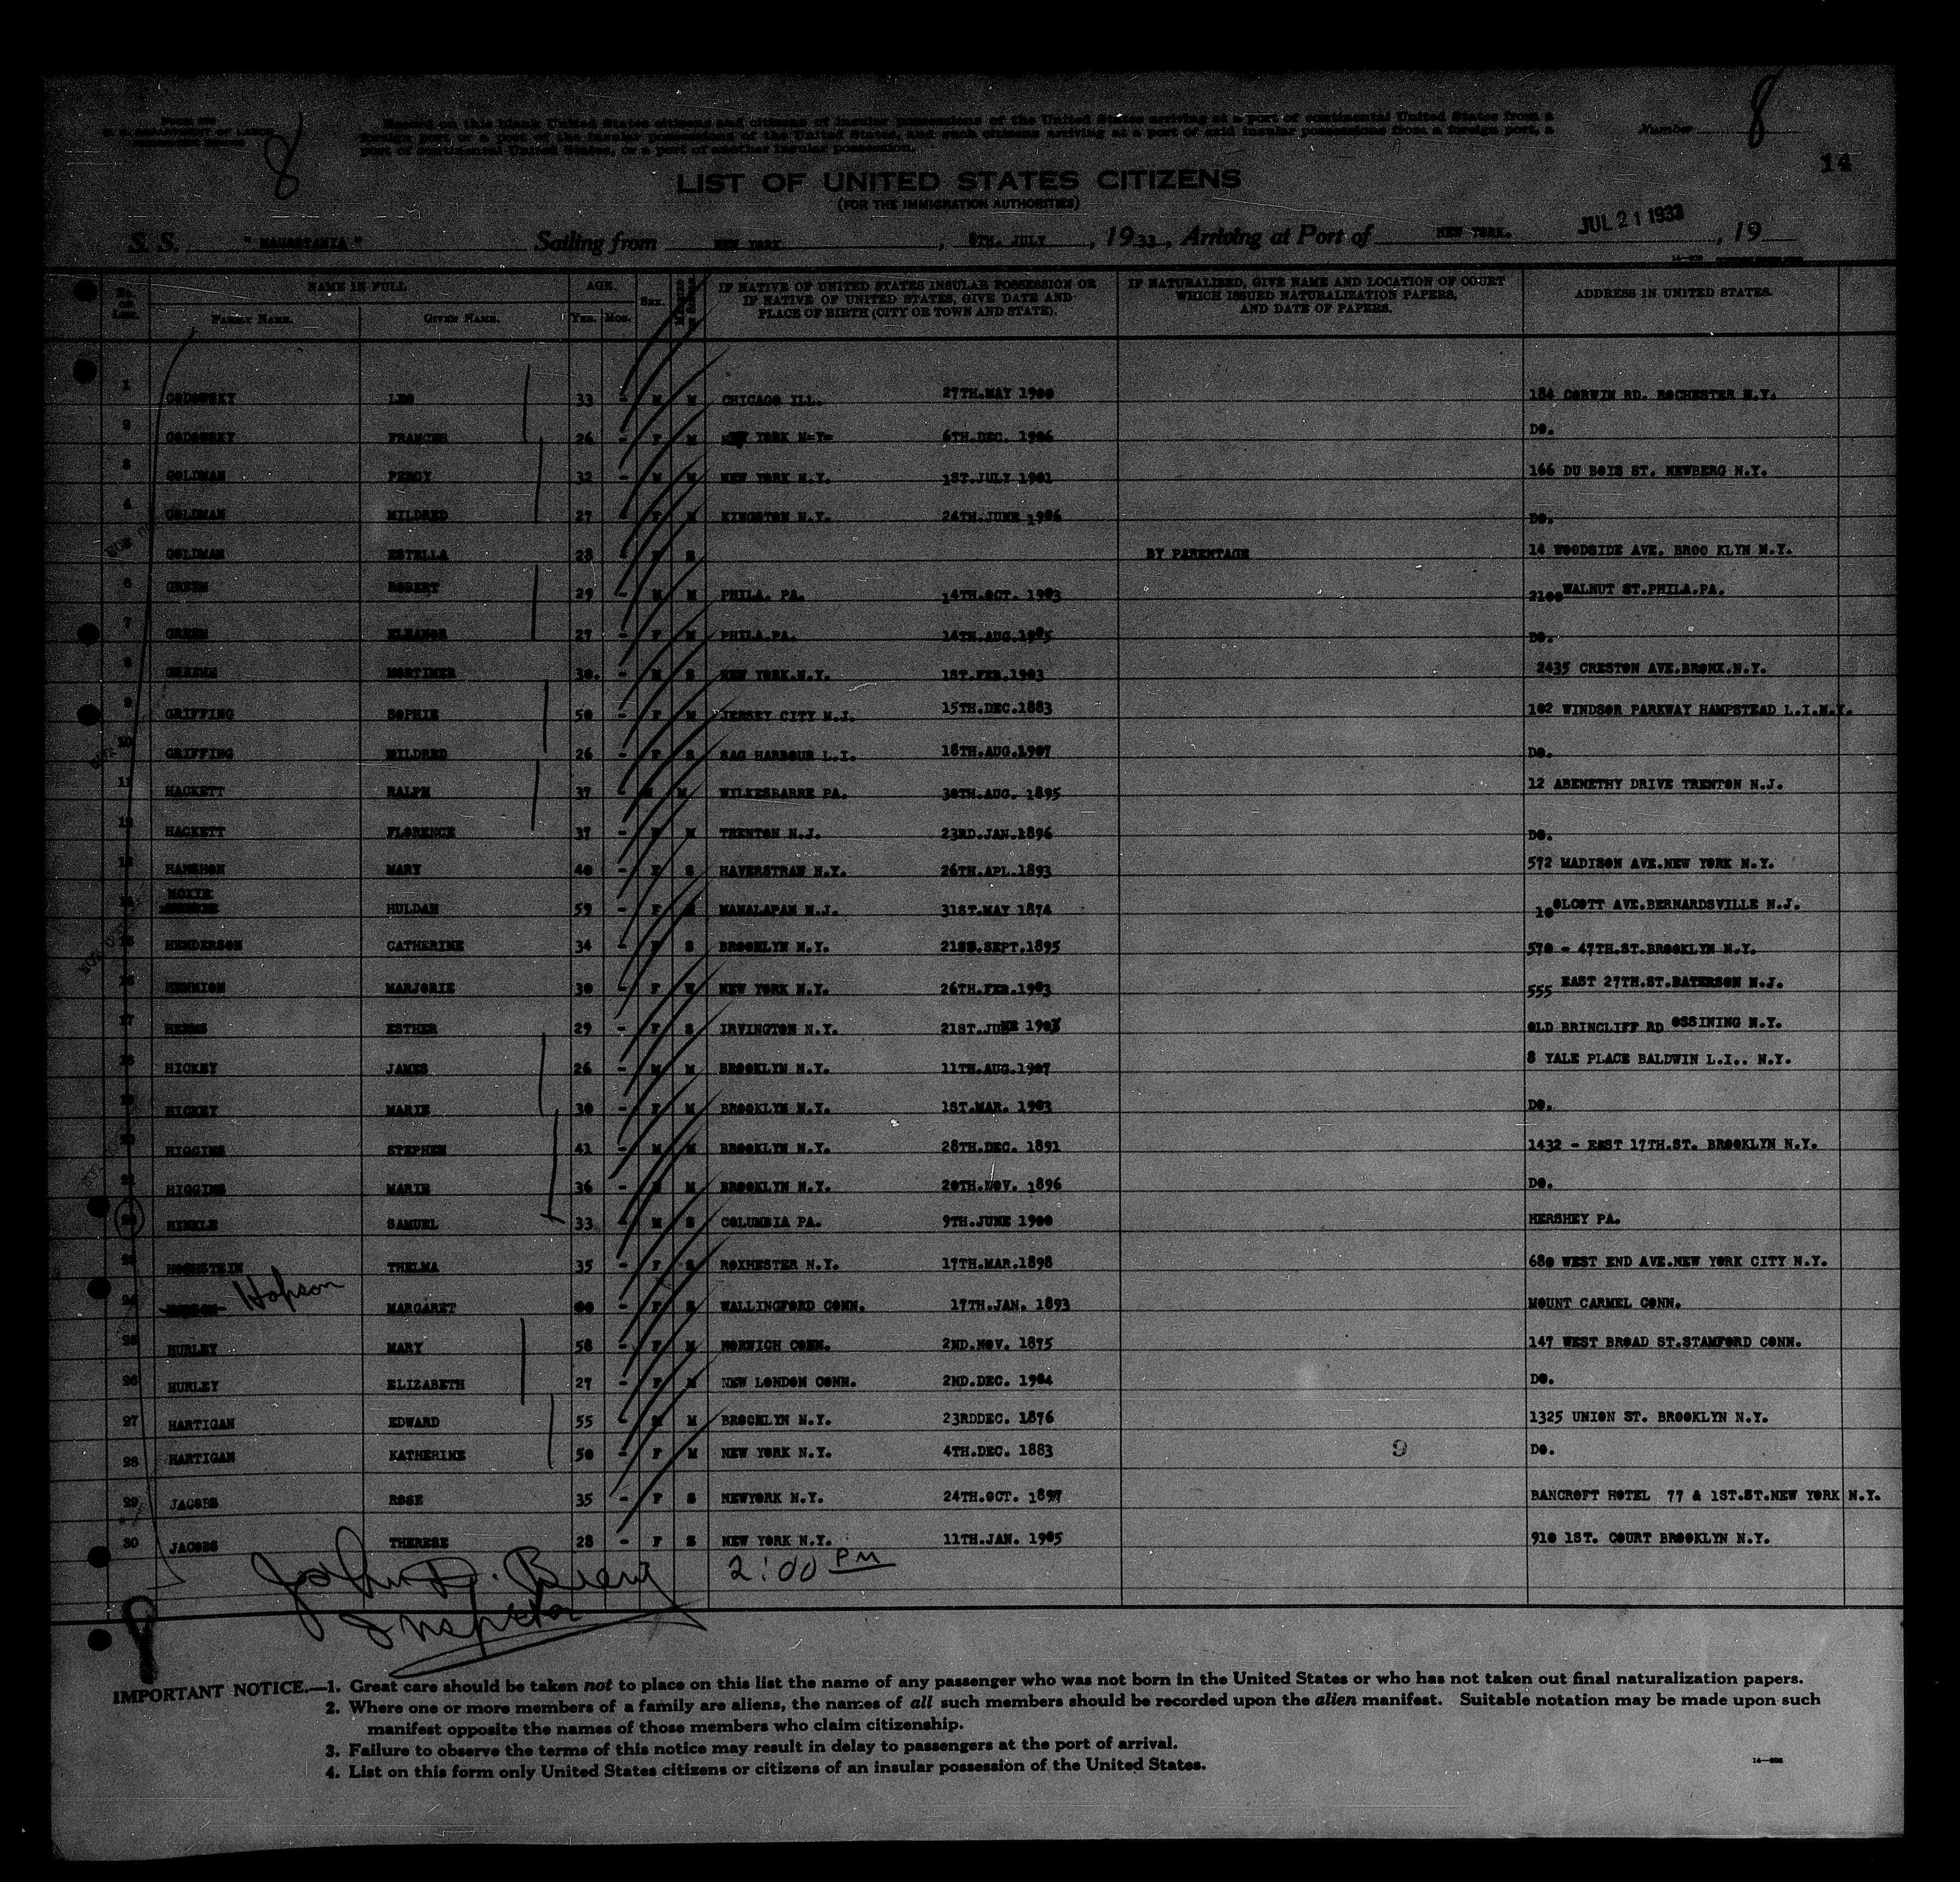 8
Record on this blank United States citizens and citizens of insular possessions of the United States arriving at a port of continental United States from a
foreign port or a port of the insular possessions of the United States, and such citizens arriving at a port of said insular possessions from a foreign port, a
port of continental United States, or a port of another insular possession.
Number 8
14
LIST OF UNITED STATES CITIZENS
(FOR THE IMMIGRATION AUTHORITIES)
S. S. "MAURETANIA" Sailing from NEW YORK, 8TH. JULY, 1933, Arriving at Port of NEW YORK. JUL 21 1933, 19
No. on List. NAME IN FULL AGE. SEX. IF NATIVE OF UNITED STATES INSULAR POSSESSION OR IF NATIVE OF UNITED STATES, GIVE DATE AND PLACE OF BIRTH (CITY OR TOWN AND STATE). IF NATURALIZED, GIVE NAME AND LOCATION OF COURT WHICH ISSUED NATURALIZATION PAPERS, AND DATE OF PAPERS. ADDRESS IN UNITED STATES.
FAMILY NAME. GIVEN NAME. YRS. MOS.
1 GODOWSKY LEO 33 - M M CHICAGO ILL. 27TH.MAY 1900 184 CORWIN RD. ROCHESTER N.Y.
2 GODOWSKY FRANCES 26 - F M NEW YORK N=Y= 6TH.DEC. 1906 DO.
3 GOLDMAN PERCY 32 - M M NEW YORK N.Y. 1ST.JULY 1901 166 DU BOIS ST. NEWBERG N.Y.
4 GOLDMAN MILDRED 27 - F M KINGSTON N.Y. 24TH.JUNE 1906 DO.
GOLDMAN ESTELLA 28 - F S BY PARENTAGE 14 WOODSIDE AVE. BROO KLYN N.Y.
6 GREEN ROBERT 29 - M M PHILA. PA. 14TH.OCT. 1903 2100 WALNUT ST.PHILA.PA.
7 GREEN ELEANOR 27 - F M PHILA.PA. 14TH.AUG.1905 DO.
8 MORTIMER 30. - M S NEW YORK.N.Y. 1ST.FEB.1903 2435 CRESTON AVE.BRONX.N.Y.
9 GRIFFING SOPHIE 50 - F M JERSEY CITY N.J. 15TH.DEC.1883 102 WINDSOR PARKWAY HAMPSTEAD L.I.N.Y.
10 GRIFFING MILDRED 26 - F S SAG HARBOUR L.I. 18TH.AUG.1907 DO.
11 HACKETT RALPH 37 - M M WILKESBARRE PA. 30TH.AUG. 1895 12 ABEMETHY DRIVE TRENTON N.J.
12 HACKETT FLORENCE 37 - F M TRENTON N.J. 23RD.JAN.1896 DO.
13 MARY 40 - F S HAVERSTRAW N.Y. 26TH.APL.1893 572 MADISON AVE.NEW YORK N.Y.
14 HULDAH 59 - F MANALAPAN N.J. 31ST.MAY 1874 10 OLCOTT AVE.BERNARDSVILLE N.J.
15 HENDERSON CATHERINE 34 - F S BROOKLYN N.Y. 21ST.SEPT.1895 570 - 47TH.ST.BROOKLYN N.Y.
16 HENNION MARJORIE 30 - F NEW YORK N.Y. 26TH.FEB.1903 555 EAST 27TH.ST.PATERSON N.J.
17 HERMS ESTHER 29 - F S IRVINGTON N.Y. 21ST.JUNE 1903 OLD BRINCLIFF RD OSSINING N.Y.
18 HICKEY JAMES 26 - M M BROOKLYN N.Y. 11TH.AUG.1907 8 YALE PLACE BALDWIN L.I.. N.Y.
19 HICKEY MARIE 30 - F M BROOKLYN N.Y. 1ST.MAR. 1903 DO.
20 HIGGINS STEPHEN 41 - M M BROOKLYN N.Y. 28TH.DEC. 1891 1432 - EAST 17TH.ST. BROOKLYN N.Y.
21 HIGGINS MARIE 36 - F M BROOKLYN N.Y. 20TH.NOV. 1896 DO.
22 HINKLE SAMUEL 33 - M S COLUMBIA PA. 9TH.JUNE 1900 HERSHEY PA.
23 HOCHSTEIN THELMA 35 - F S ROXHESTER N.Y. 17TH.MAR.1898 680 WEST END AVE.NEW YORK CITY N.Y.
24 Hopson MARGARET - F S WALLINGFORD CONN. 17TH.JAN. 1893 MOUNT CARMEL CONN.
25 HURLEY MARY 58 - F M NORWICH CONN. 2ND.NOV. 1875 147 WEST BROAD ST.STAMFORD CONN.
26 HURLEY ELIZABETH 27 - F M NEW LONDON CONN. 2ND.DEC. 1904 DO.
27 HARTIGAN EDWARD 55 - M M BROOKLYN N.Y. 23RDDEC. 1876 1325 UNION ST. BROOKLYN N.Y.
28 HARTIGAN KATHERINE 50 - F M NEW YORK N.Y. 4TH.DEC. 1883 9 DO.
29 JACOBS ROSE 35 - F S NEWYORK N.Y. 24TH.OCT. 1897 BANCROFT HOTEL 77 & 1ST.ST.NEW YORK N.Y.
30 JACOBS THERESE 28 - F S NEW YORK N.Y. 11TH.JAN. 1905 910 1ST. COURT BROOKLYN N.Y.
John D. 2:00 PM
Inspector
IMPORTANT NOTICE.—1. Great care should be taken not to place on this list the name of any passenger who was not born in the United States or who has not taken out final naturalization papers.
2. Where one or more members of a family are aliens, the names of all such members should be recorded upon the alien manifest. Suitable notation may be made upon such
manifest opposite the names of those members who claim citizenship.
3. Failure to observe the terms of this notice may result in delay to passengers at the port of arrival.
4. List on this form only United States citizens or citizens of an insular possession of the United States.